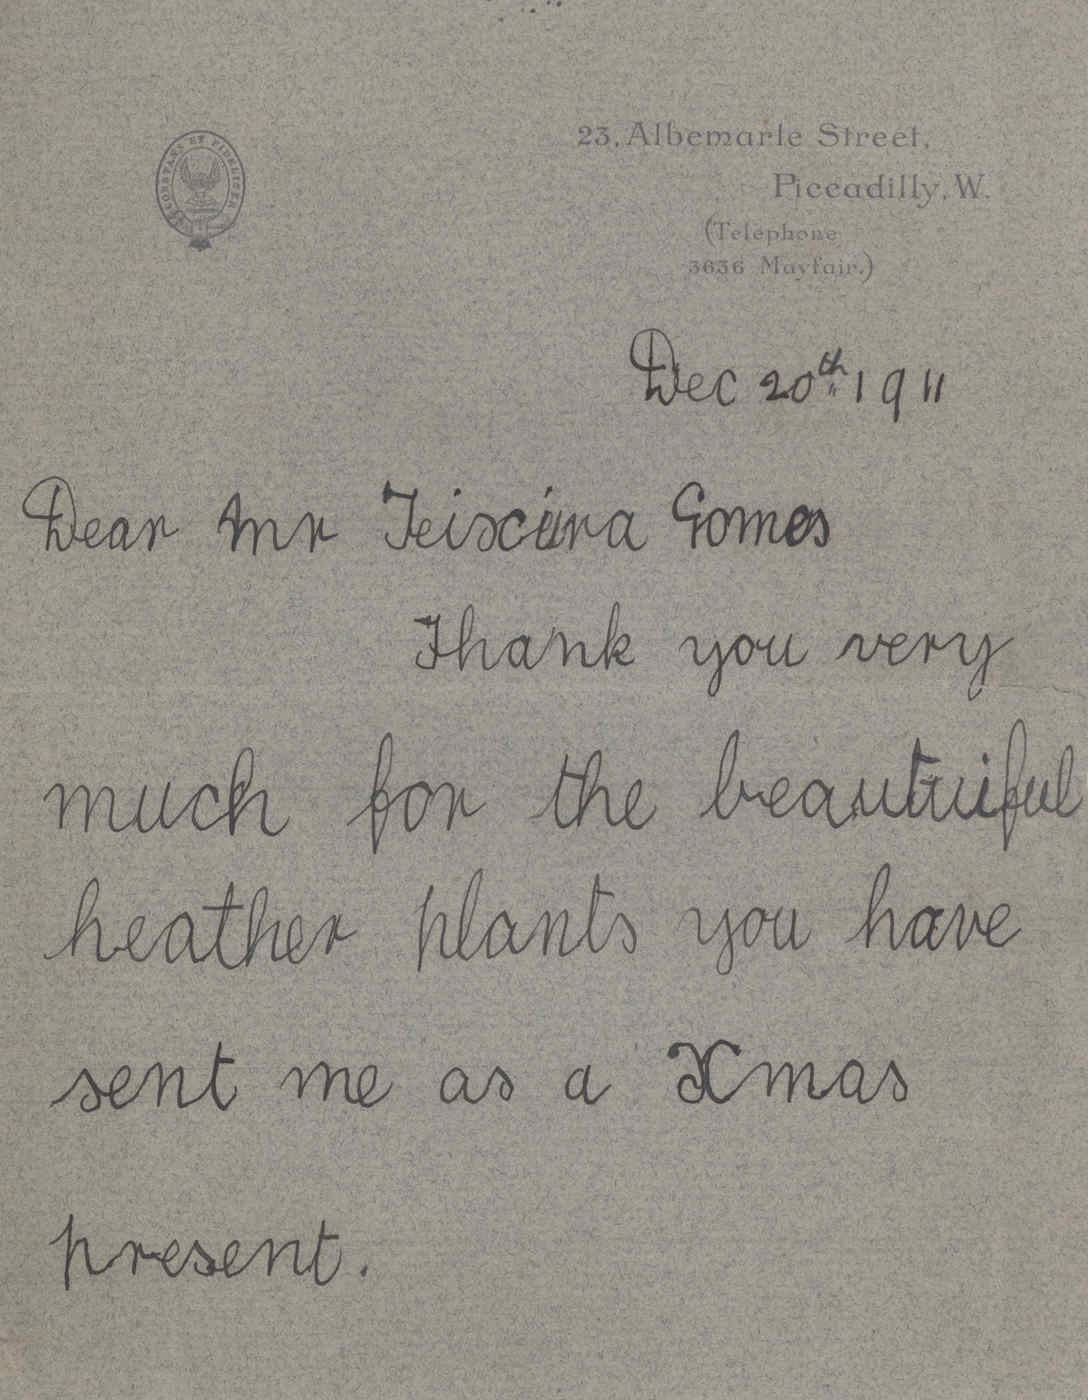 CONSTANT ET FIDELIS
23, Albemarle Street,
Piccadilly, W.
(Telephone
3636 Mayfair.)
Dec 20th 1911
Dear Mr Teixeira Gomes
Thank you very
much for the beautuiful
heather plants you have
sent me as a Xmas
present.